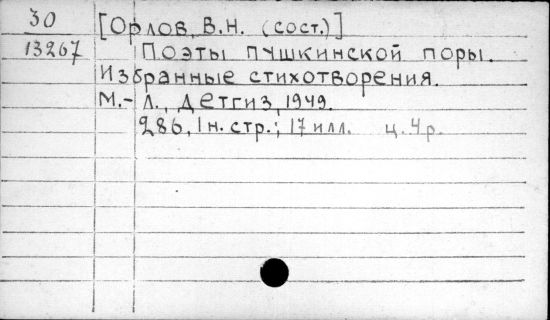 30
[Орлов, В.Н. (сост.)]
13267
Поэты пушкинской поры.
Избранные стихотворения.
М.-Л., Детгиз, 1949.
286, 1 н. стр.; 17 илл. ц. 4 р.